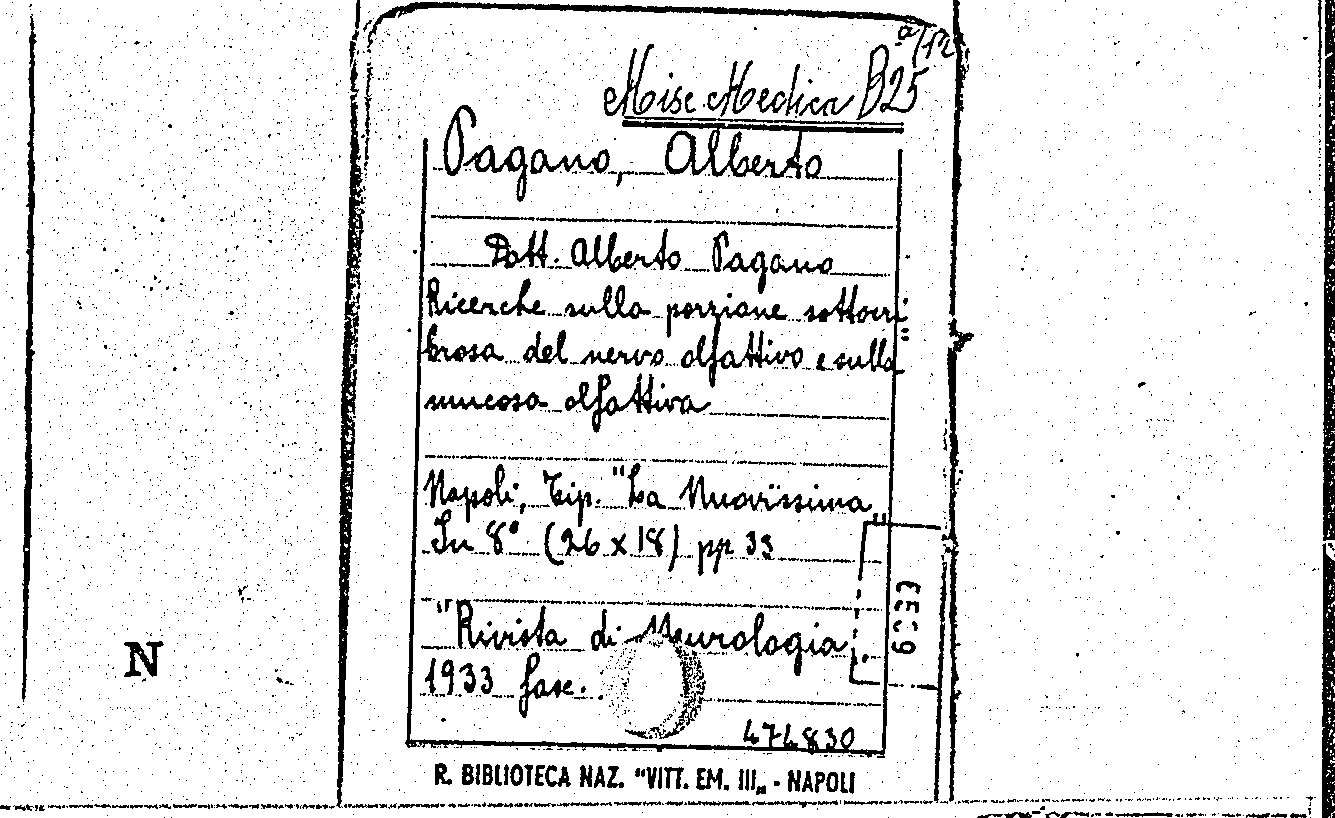 a/12
Misc. Medica B25
Pagano, Alberto
Dott. Alberto Pagano
Ricerche sulla porzione sottocri
brosa del nervo olfattivo e sulla
mucosa olfattiva
Napoli, Tip. "La Nuovissima"
In 8° (26 x 18) pp 33
"Rivista di Neurologia,
1933 fasc.
474830
R. BIBLIOTECA NAZ. "VITT. EM. III„ - NAPOLI
N